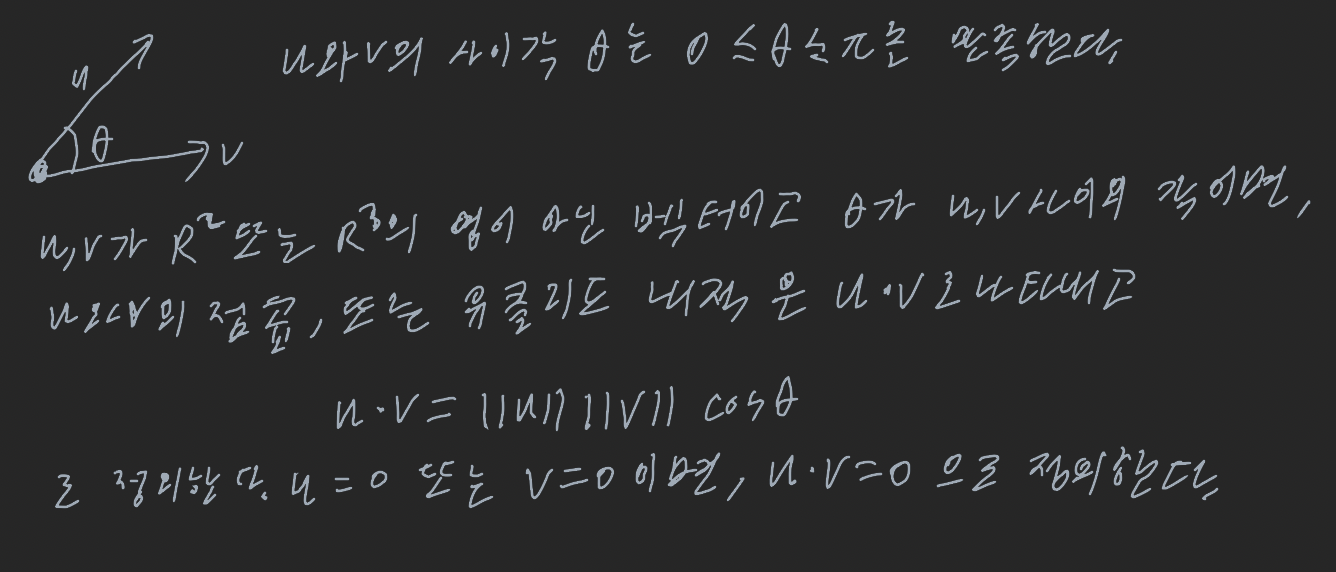 u
θ
v
u와 v의 사이각 θ는 0 ≤ θ ≤ π를 만족한다.
u, v가 R² 또는 R³의 영이 아닌 벡터이고 θ가 u, v 사이의 각이면,
u와 v의 점곱, 또는 유클리드 내적은 u·v로 나타내고
u·v = ||u|| ||v|| cosθ
로 정의한다. u = 0 또는 v = 0 이면, u·v = 0 으로 정의한다.